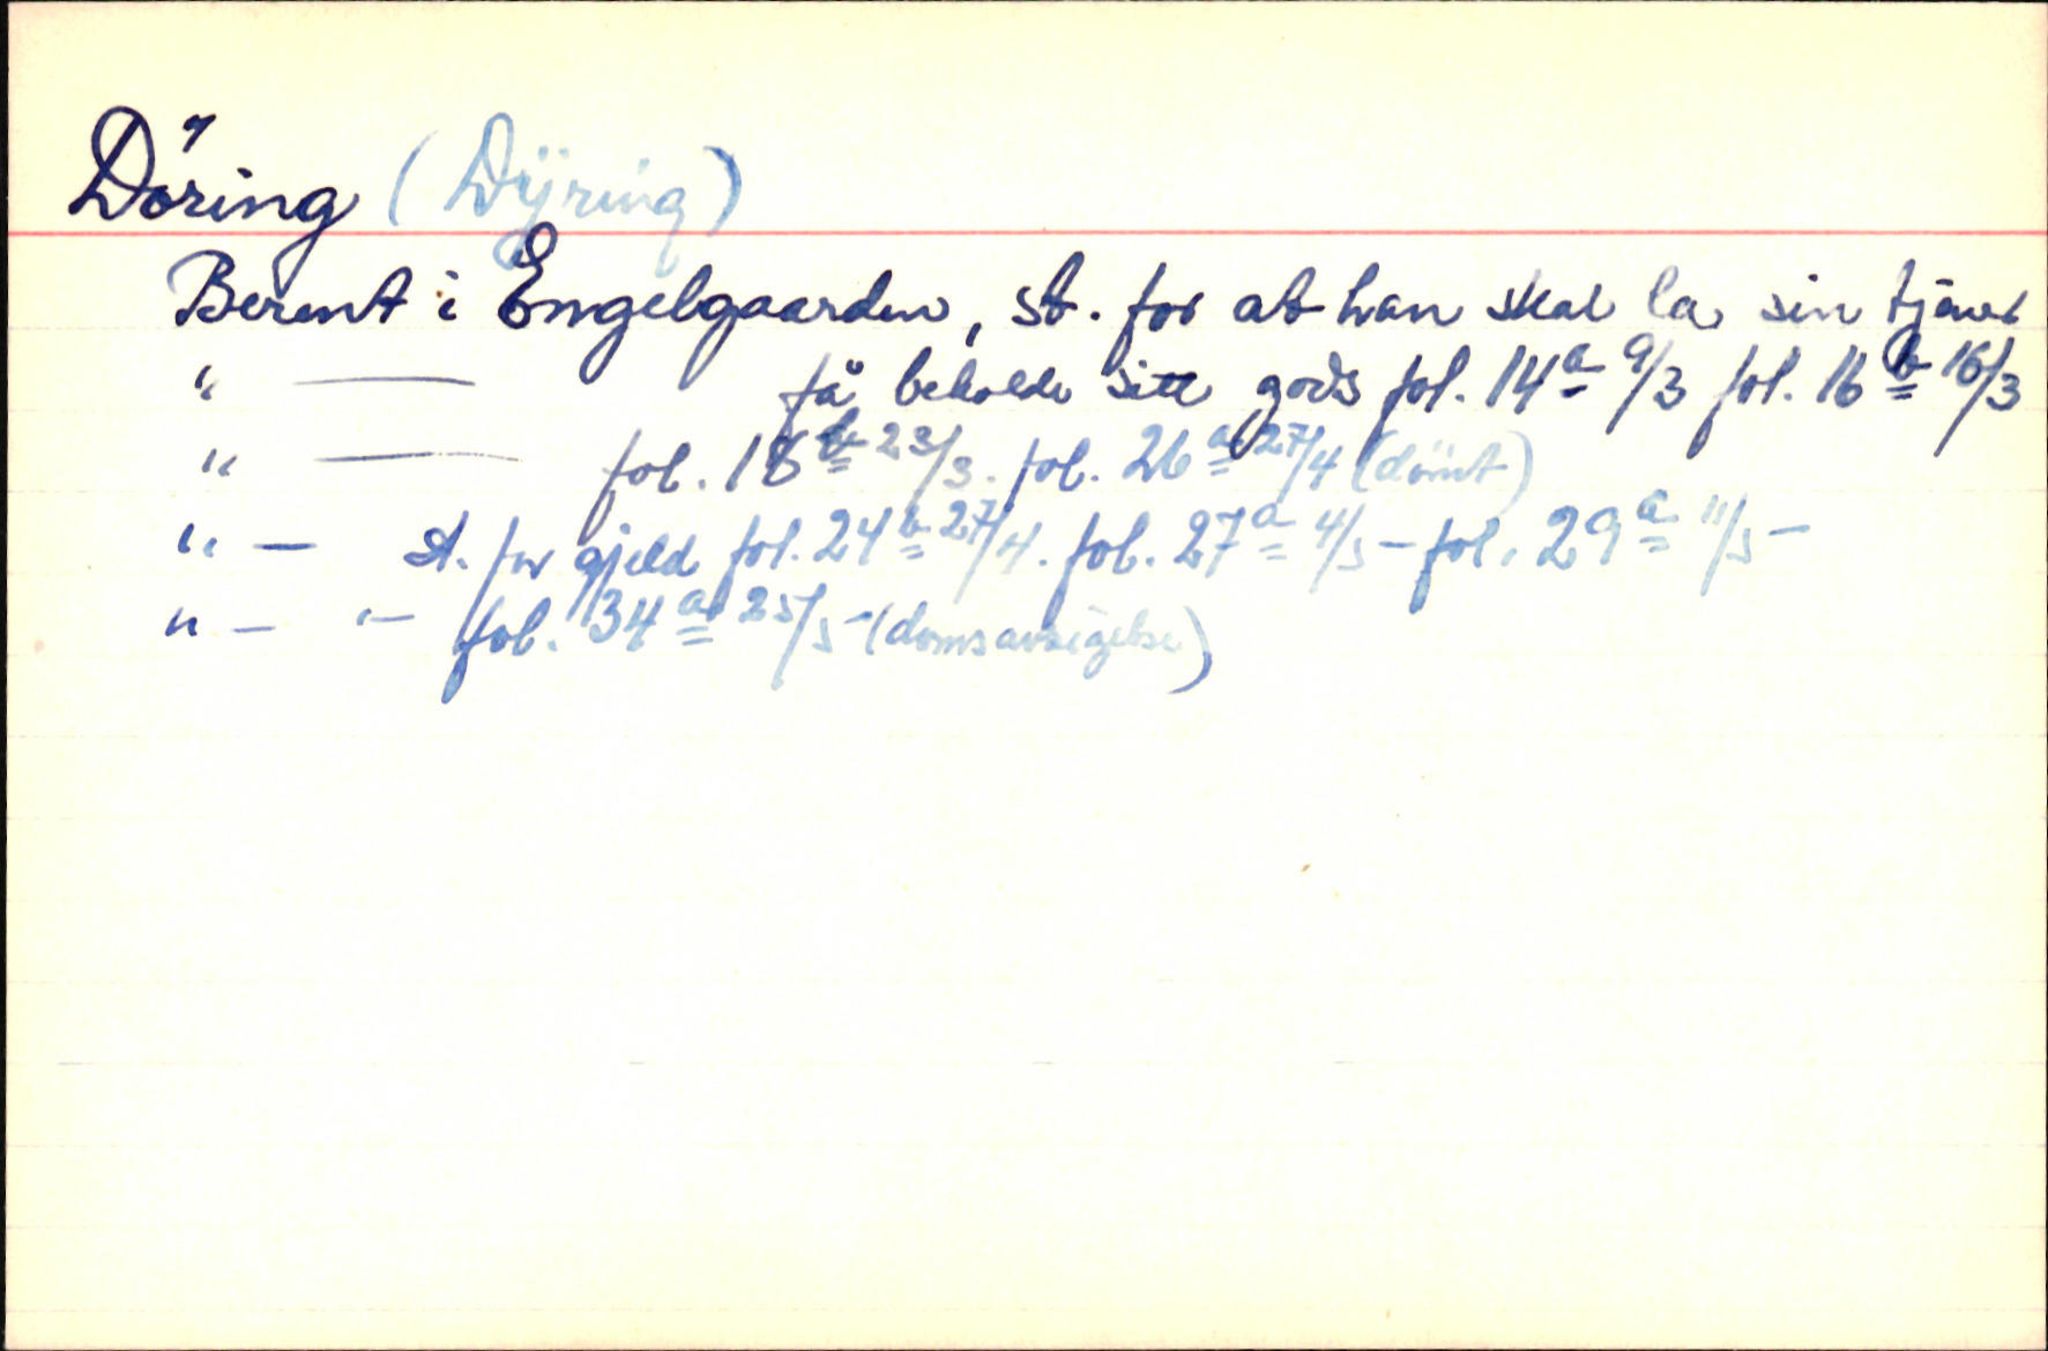 Döring (Dÿring)
Berent i Engelgaarden, st. for at han skal la sin tjener
" — få beholde sitt gods fol. 14a 9/3 fol. 16b 16/3
" — fol. 18b 23/3. fol. 26a 27/4 (dömt)
" — st. for gjeld fol. 24b 27/4. fol. 27a 4/5 – fol. 29a 11/5 –
" — " — fol. 34a 25/5 – (domsavsigelse)